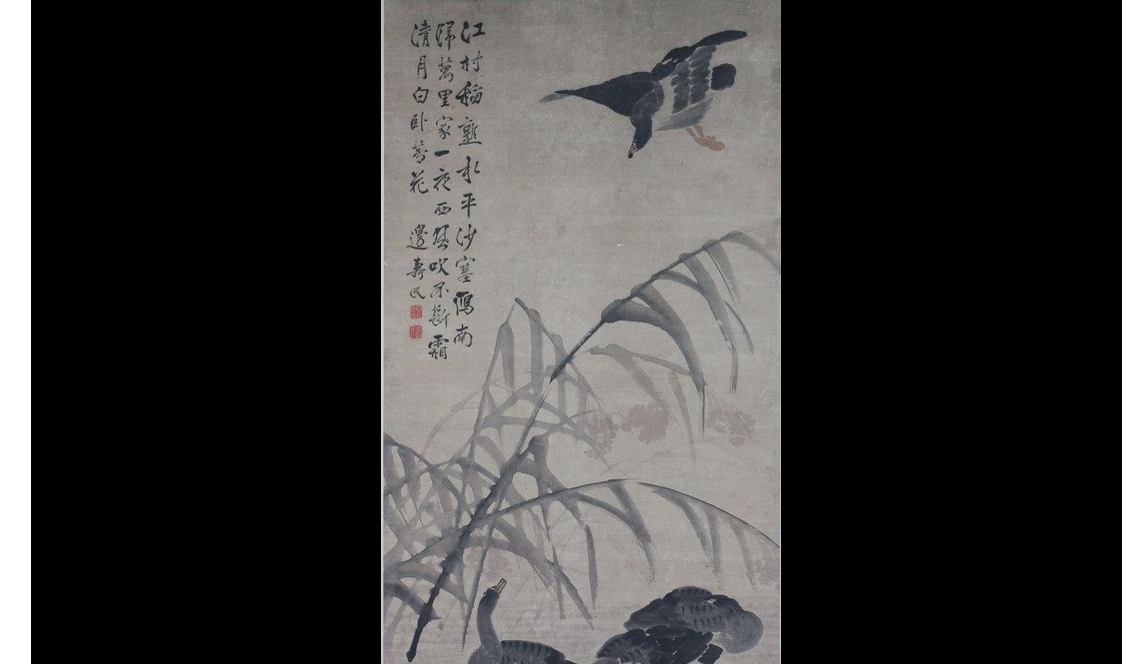 江村稻熟水平沙塞鴻南
歸萬里家一夜西風吹不斷霜
清月白卧蘆花
邊壽民